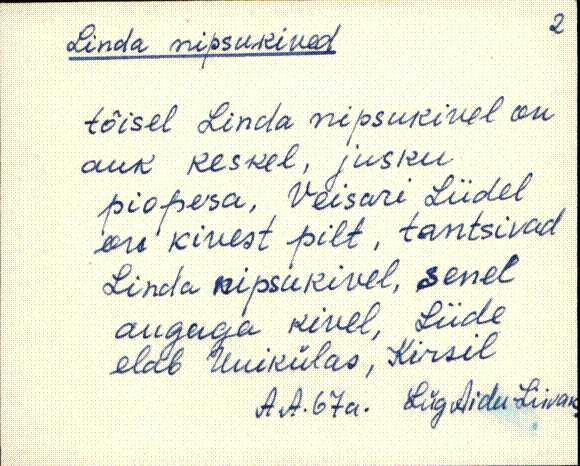 2
Linda nipsukived
tõisel Linda nipsukivel on
auk keskel, jusku
piopesa, Veisari Liidel
on kivest pilt, tantsivad
Linda nipsukivel, senel
augaga kivel, Liide
elab Unikülas, Kirsil
A A. 67a. Lüg Aidu-Liiva k.